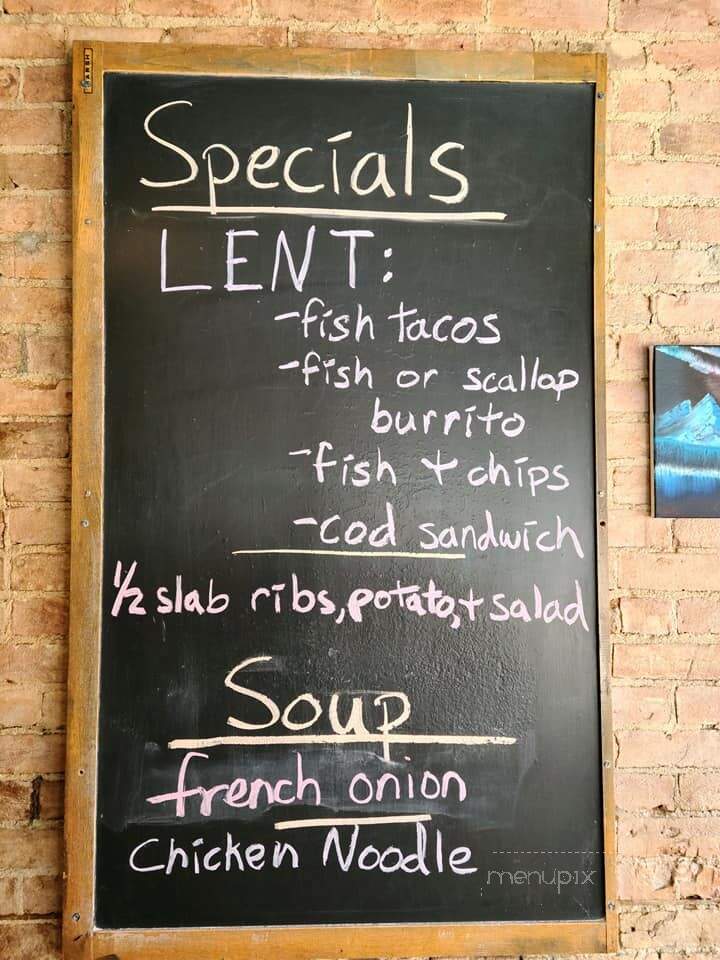 Specials
LENT:
-fish tacos
-fish or scallop
burrito
-fish + chips
-cod sandwich
1/2 slab ribs, potato, + salad
Soup
french onion
Chicken Noodle
menupix